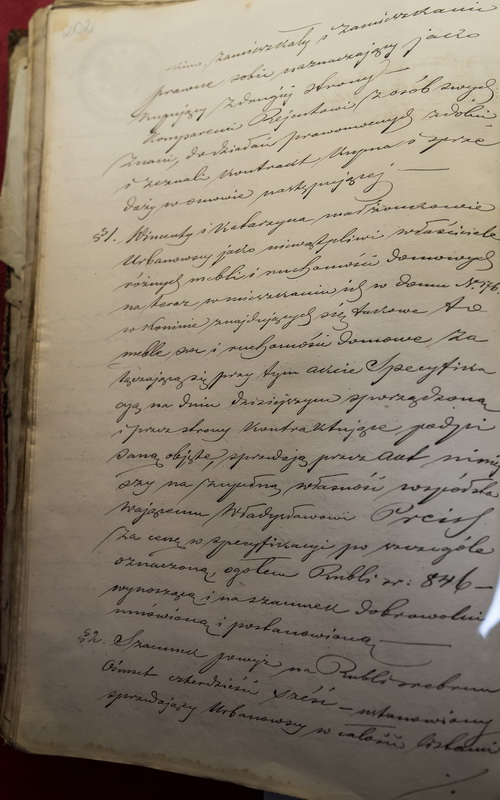 202
zamieszkały i zamieszkanie
prawne sobie naznaczający jako
kupujący z drugiej strony —
Komparenci Rejentowi z osób swych
znani, do działań prawomocnych zdolni
i zeznali Kontrakt Kupna i sprze
daży w osnowie następującej —
§1. Wincenty i Katarzyna małżonkowie
Urbanowscy jako niewątpliwi właściciele
różnych mebli i ruchomości domowych
na teraz w mieszkaniu ich w domu Nr 176
w Koninie znajdujących się takowe to
meble i ruchomości domowe za
łączającą się przy tym akcie Specyfika
cyą na dniu dzisiejszym sporządzoną
i przez strony Kontraktujące podpi
saną objęte, sprzedają przez Akt niniej
szy na zupełną własność współsta
wającemu Władysławowi Preiss
za cenę w specyfikacyi po szczególe
oznaczoną, ogółem Rubli sr: 846 —
wynoszącą i na szacunek dobrowolnie
umówioną i postanowioną —
§2. Szacunek powyż na Rubli srebrem
Ośmset czterdzieści sześć — ustanowiony
sprzedający Urbanowscy w całości listami